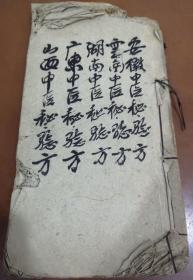 安徽中医秘验方
云南中医秘验方
湖南中医秘验方
广东中医秘验方
山西中医秘验方